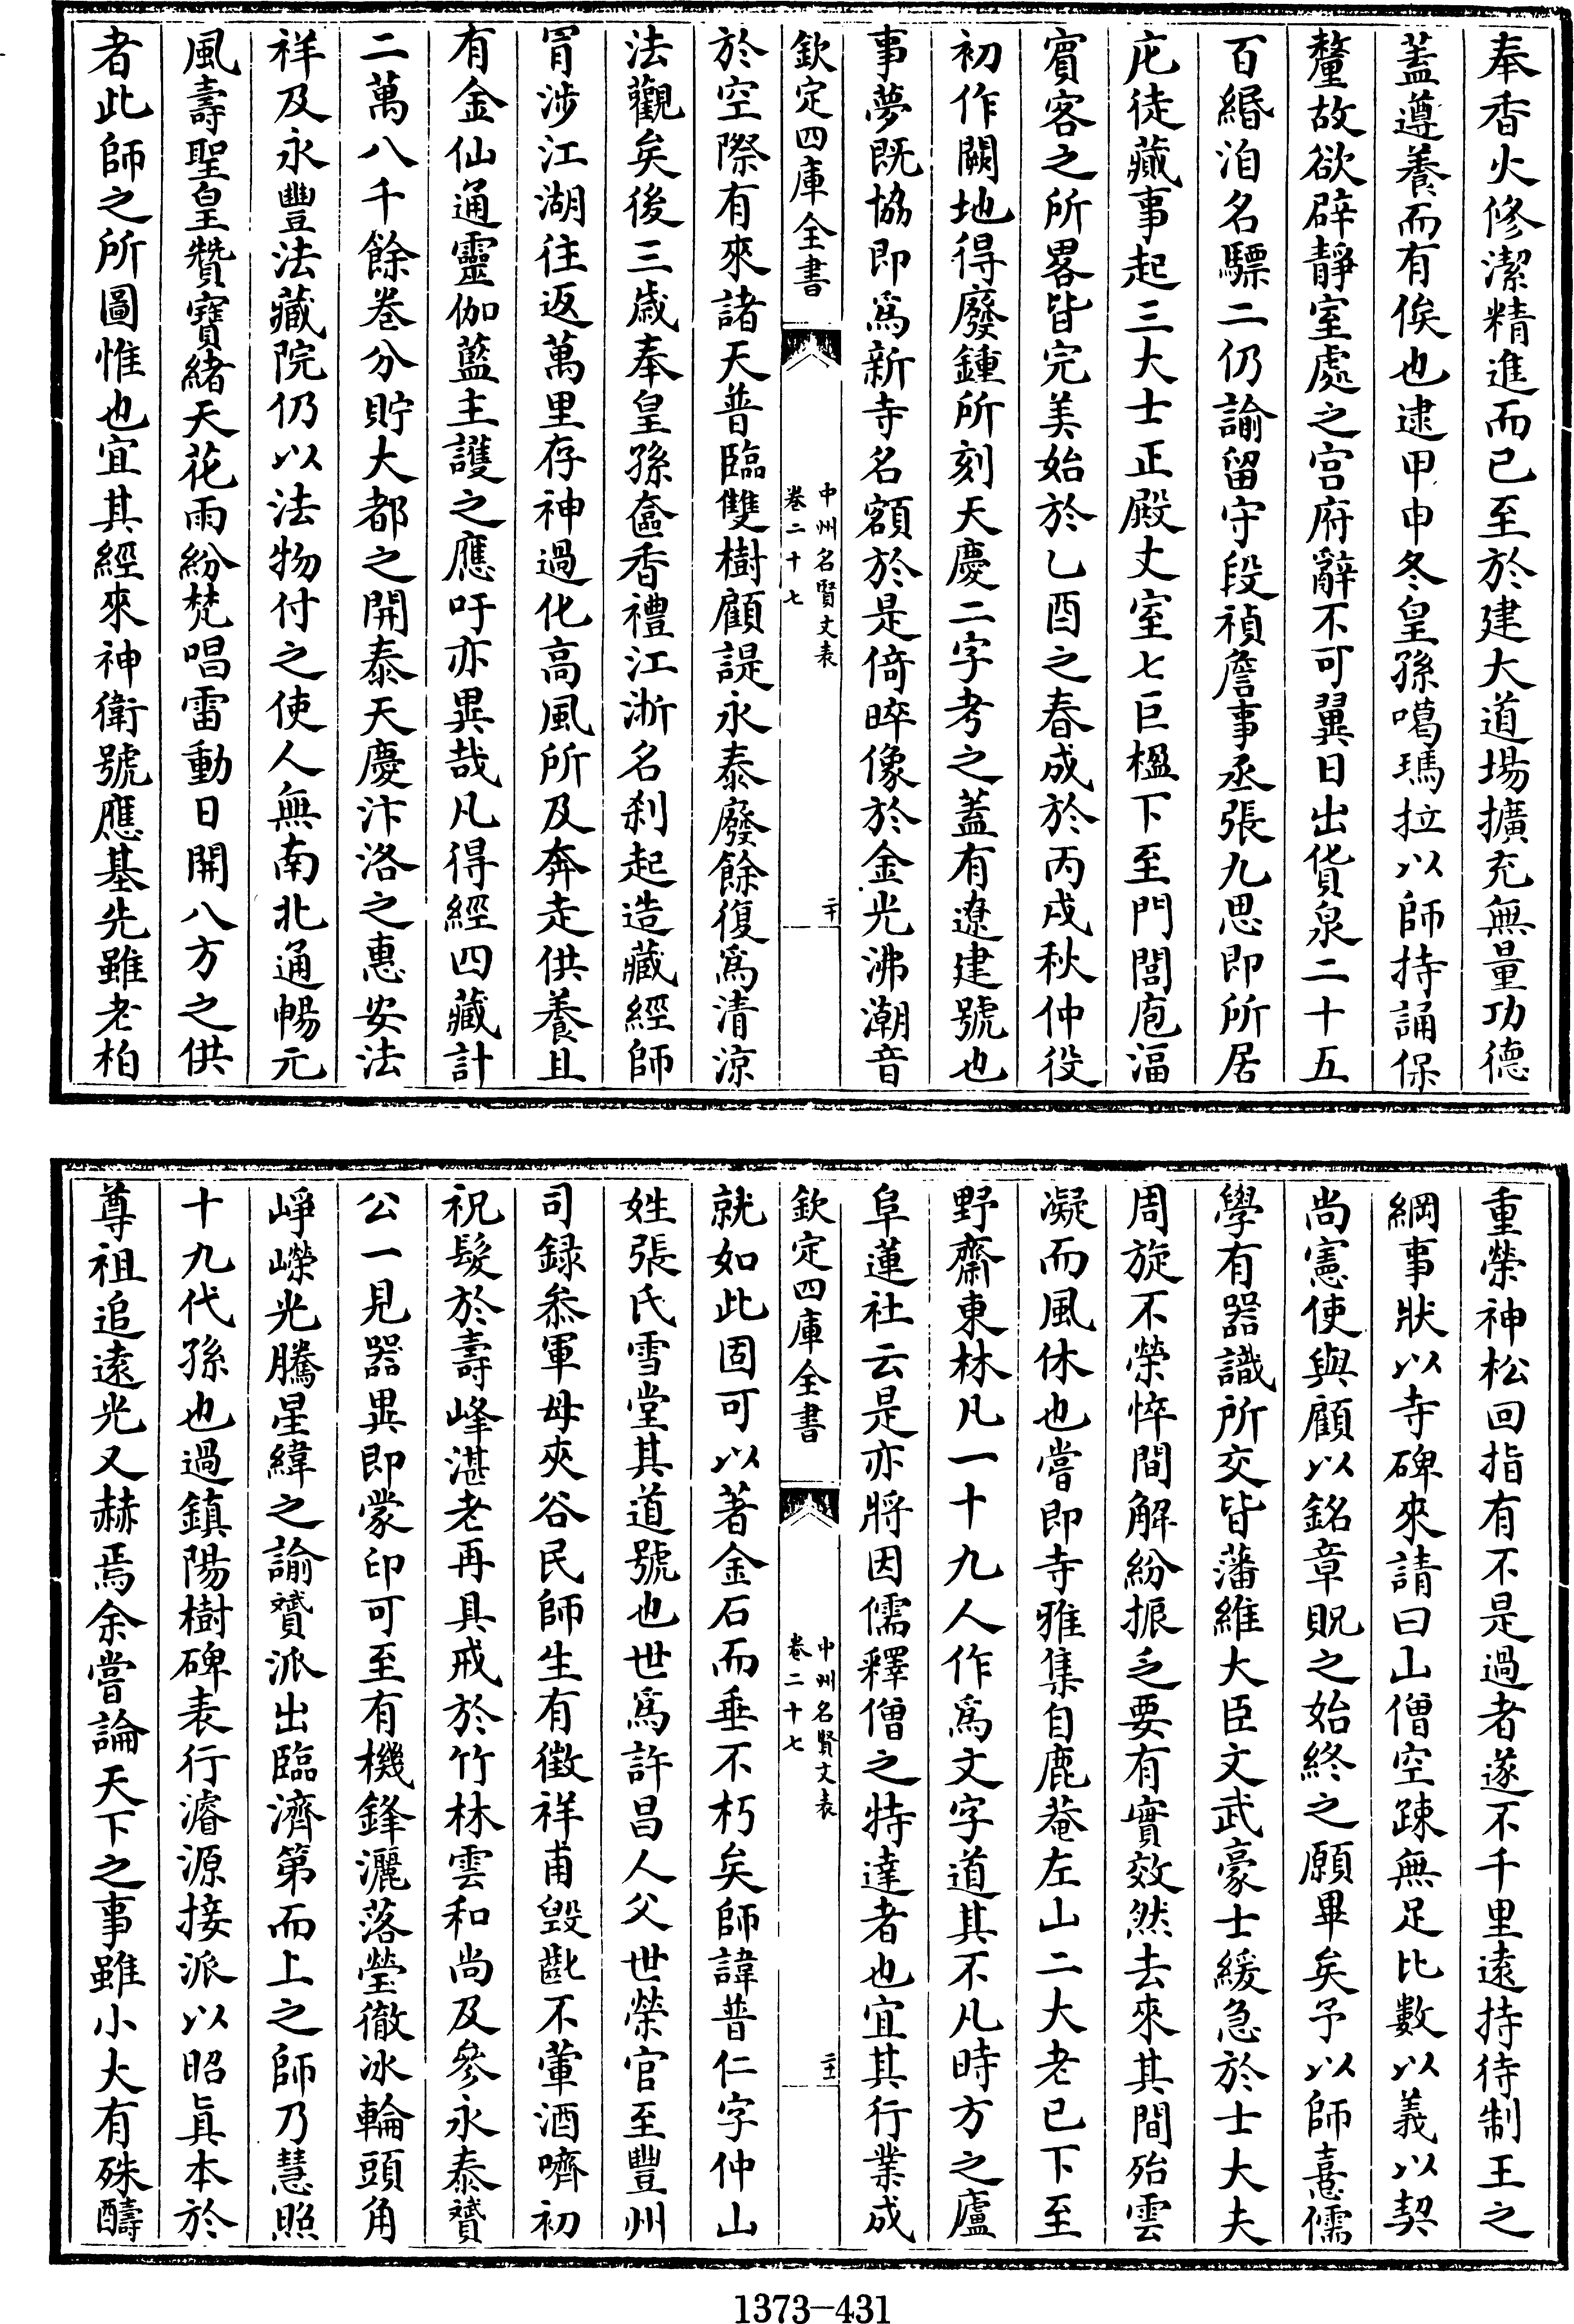 奉香火修潔精進而已至於建大道場擴充無量功德
蓋遵養而有俟也逮甲申冬皇孫噶瑪拉以師持誦保
釐故欲辟静室處之宫府辭不可翼日出貨泉二十五
百緡洎名驃二仍諭留守段禎詹事丞張九思即所居
庀徒蕆事起三大士正殿丈室七巨楹下至門閭庖湢
賓客之所畧皆完美始於乙酉之春成於丙戌秋仲役
初作闕地得廢鍾所刻天慶二字考之蓋有遼建號也
事夢既協即爲新寺名額於是倚晬像於金光沸潮音
欽定四庫全書
中州名賢文表
卷二十七
二十
於空際有來諸天普臨雙樹顧諟永泰廢餘復爲清涼
法觀矣後三歲奉皇孫奩香禮江浙名刹起造藏經師
胷涉江湖往返萬里存神過化高風所及奔走供養且
有金仙通靈伽藍主護之應吁亦異哉凡得經四藏計
二萬八千餘卷分貯大都之開泰天慶汴洛之惠安法
祥及永豐法藏院仍以法物付之使人無南北通暢元
風壽聖皇贊寶緒天花雨紛梵唱雷動日開八方之供
者此師之所圖惟也宜其經來神衛號應基先雖老柏
重榮神松回指有不是過者遂不千里遠持待制王之
綱事狀以寺碑來請曰山僧空疎無足比數以義以契
尚憲使與顧以銘章貺之始終之願畢矣予以師憙儒
學有器識所交皆藩維大臣文武豪士緩急於士大夫
周旋不榮悴間解紛振乏要有實效然去來其間殆雲
凝而風休也嘗即寺雅集自鹿菴左山二大老已下至
野齋東林凡一十九人作爲文字道其不凡時方之廬
阜蓮社云是亦將因儒釋僧之特達者也宜其行業成
欽定四庫全書
中州名賢文表
卷二十七
二十一
就如此固可以著金石而垂不朽矣師諱普仁字仲山
姓張氏雪堂其道號也世爲許昌人父世榮官至豐州
司録叅軍母夾谷民師生有徵祥甫毀齔不葷酒嚌初
祝髮於壽峰湛老再具戒於竹林雲和尚及參永泰贇
公一見器異即蒙印可至有機鋒灑落瑩徹冰輪頭角
崢嶸光騰星緯之諭贇派出臨濟第而上之師乃慧照
十九代孫也過鎮陽樹碑表行濬源接派以昭眞本於
尊祖追遠光又赫焉余嘗論天下之事雖小大有殊醻
1373-431